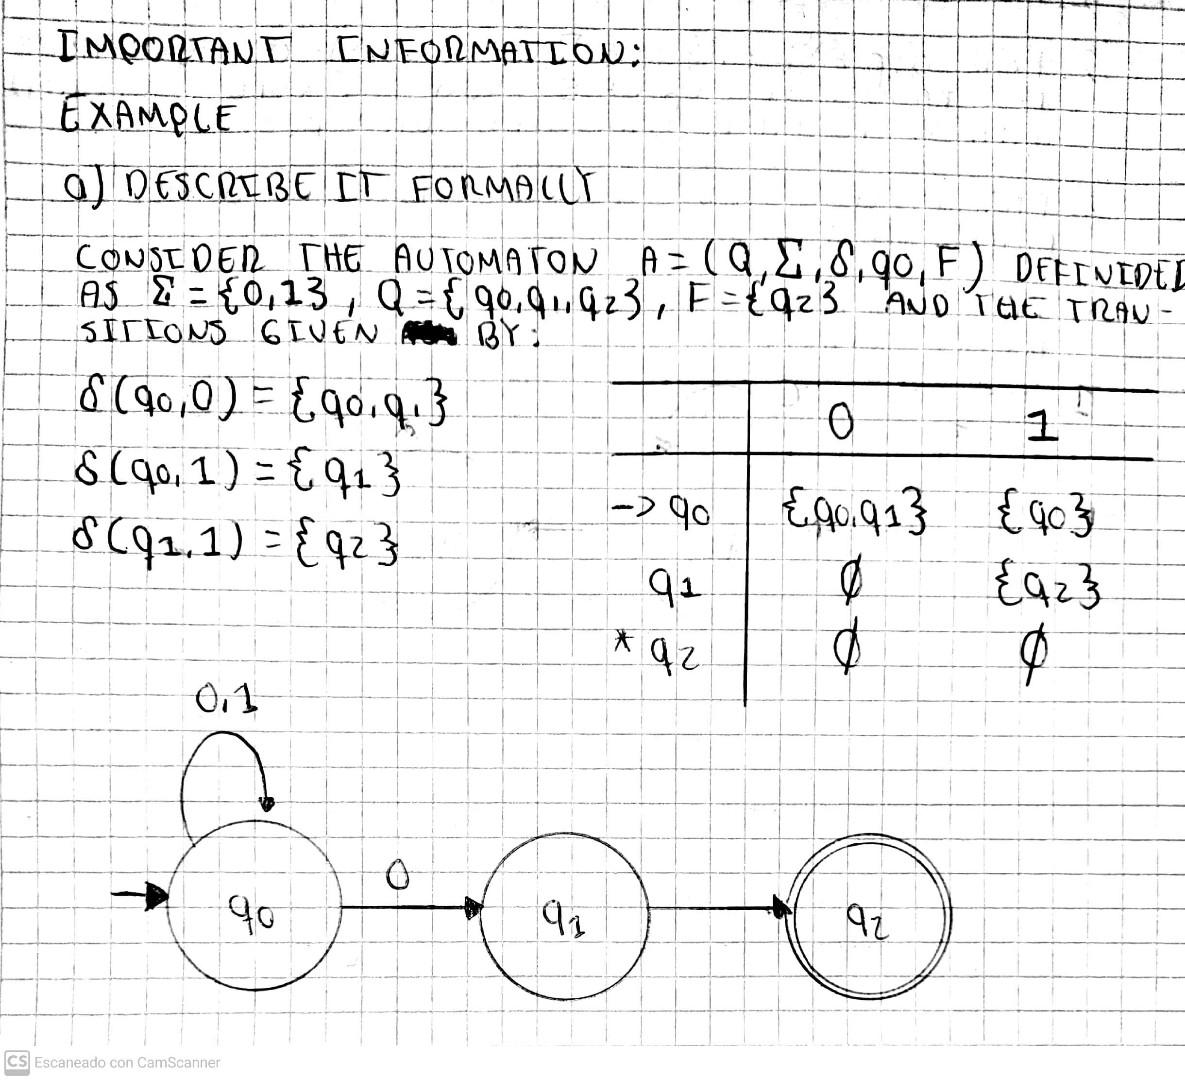 IMPORTANT INFORMATION:
EXAMPLE
a) DESCRIBE IT FORMALLY
CONSIDER THE AUTOMATON A = (Q, Σ, δ, q0, F) DEFINIDED
AS Σ = {0,1}, Q = {q0,q1,q2}, F = {q2} AND THE TRAN-
SITIONS GIVEN BY:
δ(q0,0) = {q0,q1}
δ(q0,1) = {q1}
δ(q1,1) = {q2}
0 1
-> q0 {q0,q1} {q0}
q1 ∅ {q2}
* q2 ∅ ∅
0,1
0
q0 q1 q2
CS Escaneado con CamScanner